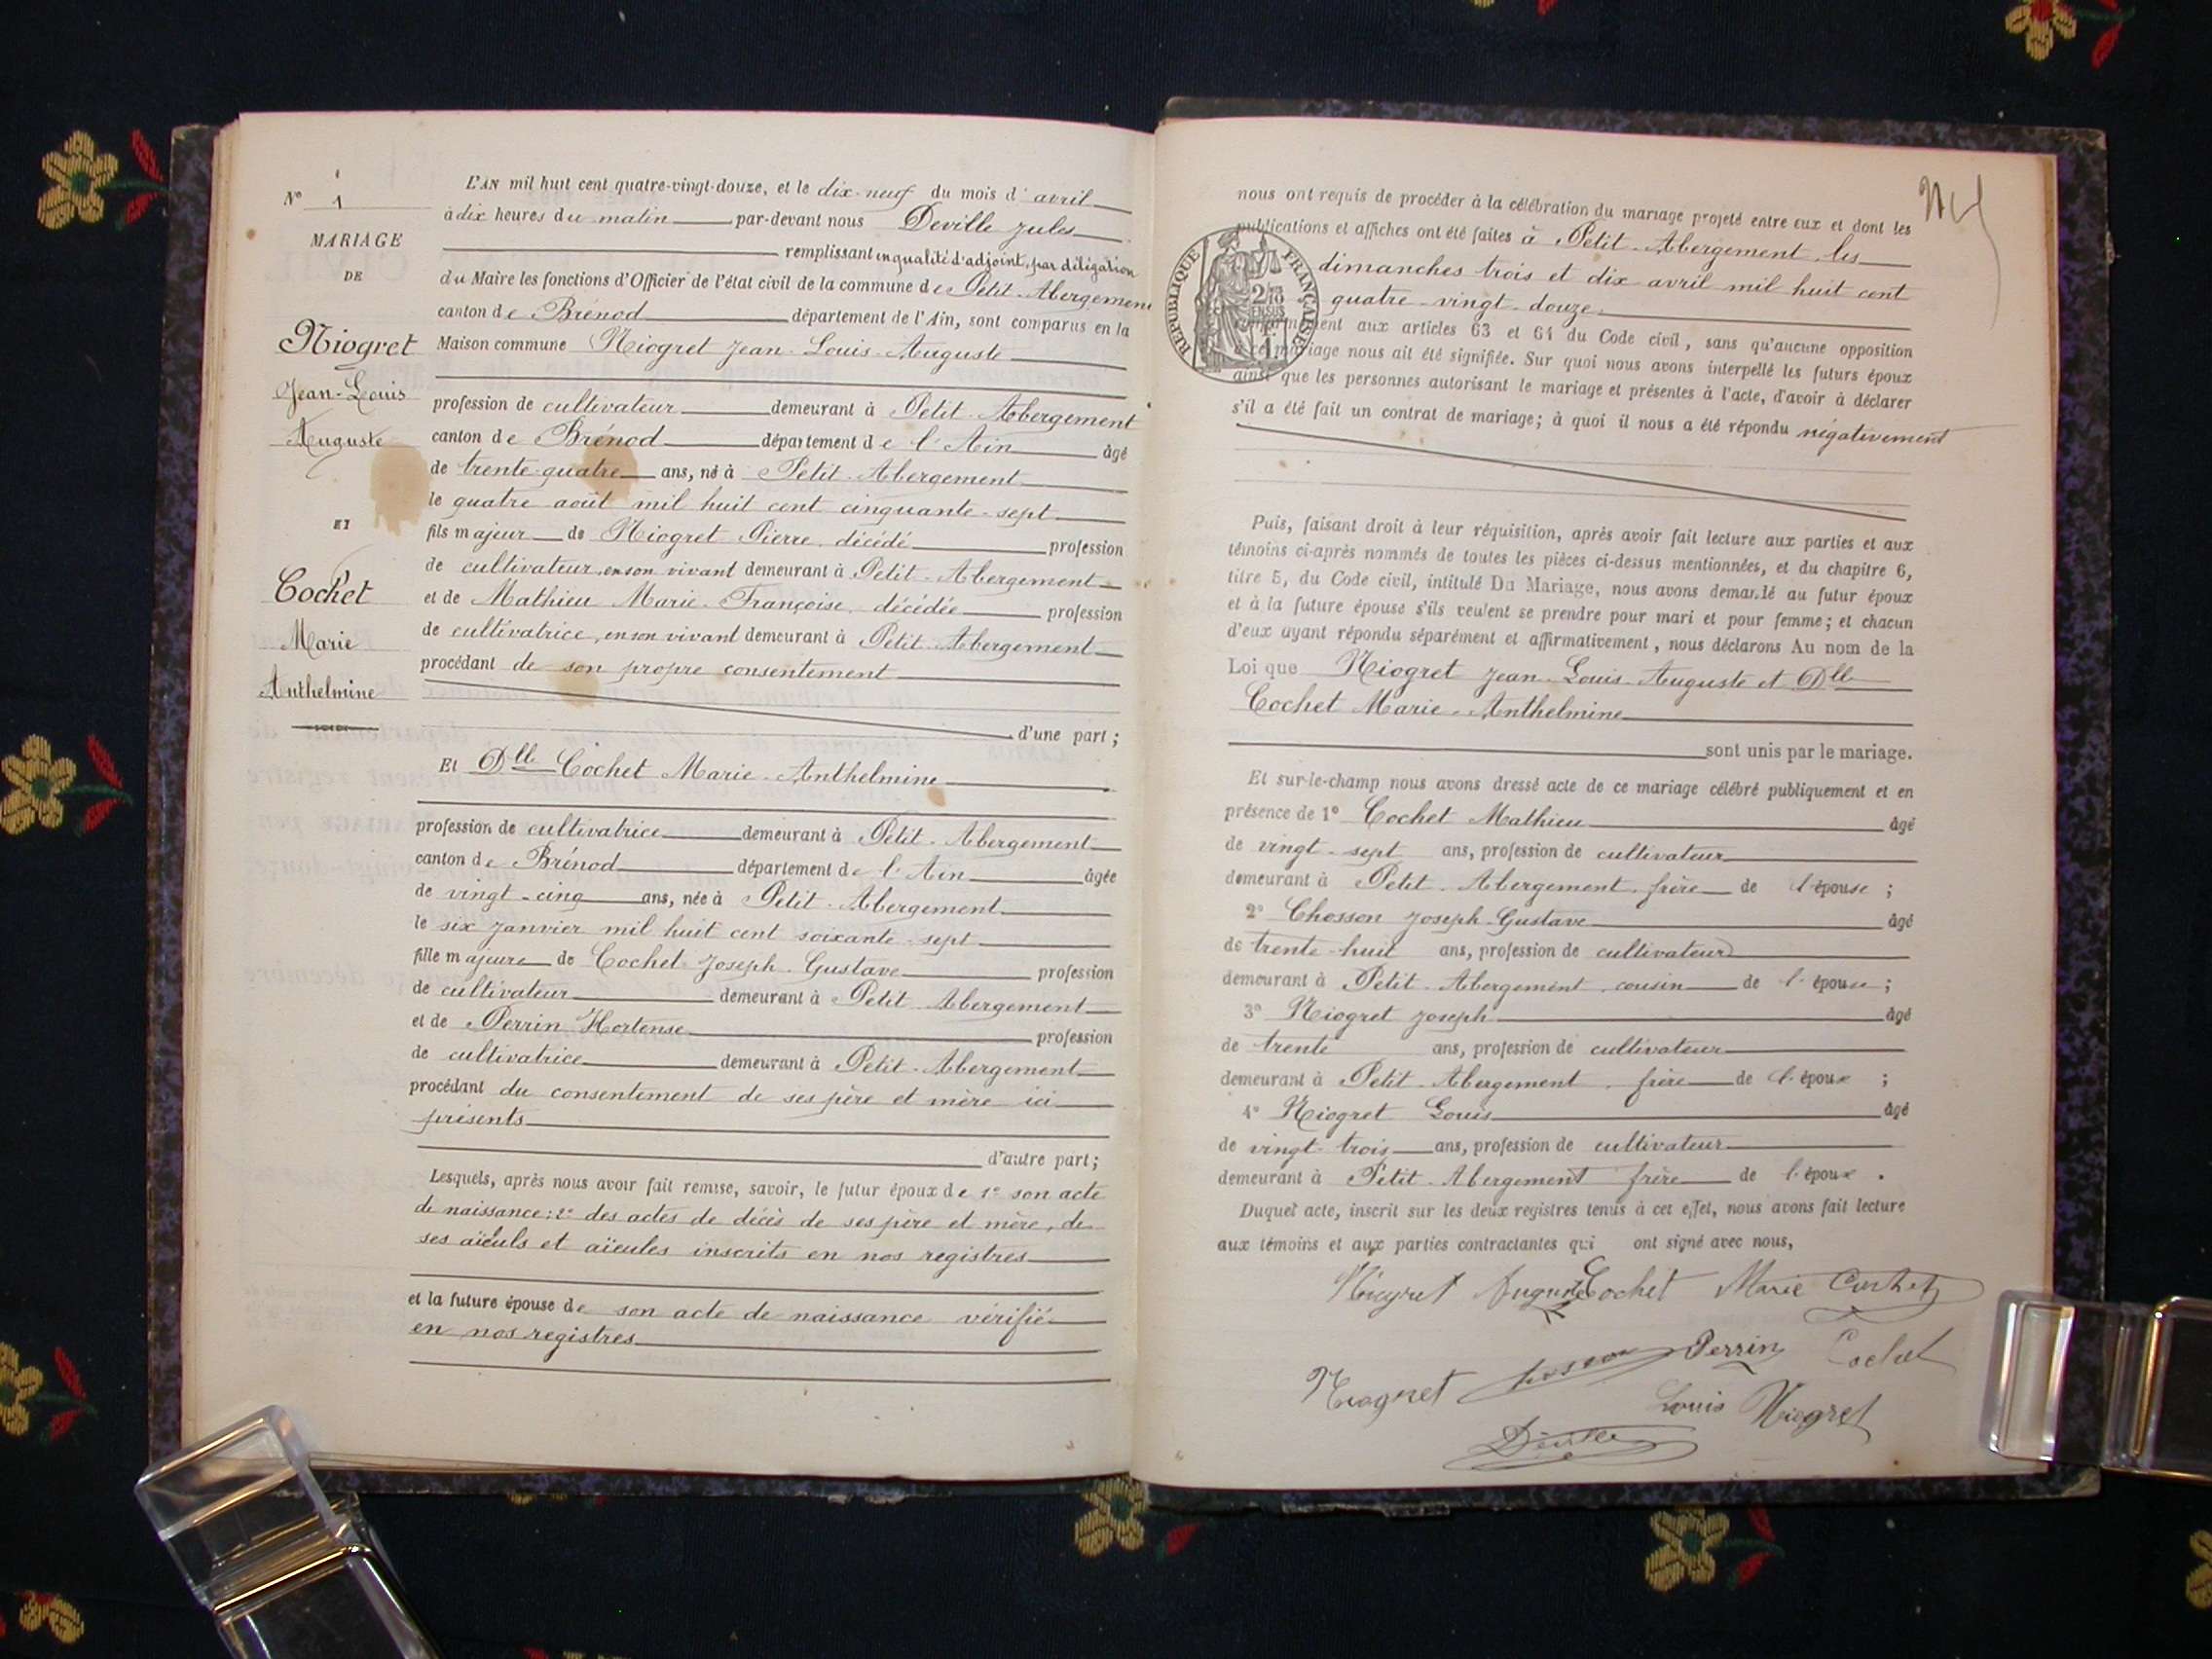 N° 1
MARIAGE
DE
Niogret
Jean-Louis
Auguste
ET
Cochet
Marie
Anthelmine
L'AN mil huit cent quatre-vingt-douze, et le dix-neuf du mois d'avril
à dix heures du matin par-devant nous Deville Jules
remplissant en qualité d'adjoint, par délégation
du Maire les fonctions d'Officier de l'état civil de la commune de Petit-Abergement
canton de Brénod département de l'Ain, sont comparus en la
Maison commune Niogret Jean-Louis-Auguste
profession de cultivateur demeurant à Petit-Abergement
canton de Brénod département de l'Ain âgé
de trente-quatre ans, né à Petit-Abergement
le quatre août mil huit cent cinquante-sept
fils majeur de Niogret Pierre, décédé profession
de cultivateur, en son vivant demeurant à Petit-Abergement
et de Mathieu Marie-Françoise, décédée profession
de cultivatrice, en son vivant demeurant à Petit-Abergement
procédant de son propre consentement
d'une part ;
Et Dlle Cochet Marie-Anthelmine
profession de cultivatrice demeurant à Petit-Abergement
canton de Brénod département de l'Ain âgée
de vingt-cinq ans, née à Petit-Abergement
le six janvier mil huit cent soixante-sept
fille majeure de Cochet Joseph-Gustave profession
de cultivateur demeurant à Petit-Abergement
et de Perrin Hortense profession
de cultivatrice demeurant à Petit-Abergement
procédant du consentement de ses père et mère ici
présents
d'autre part ;
Lesquels, après nous avoir fait remise, savoir, le futur époux de 1° son acte
de naissance ; 2° des actes de décès de ses père et mère, de
ses aïeuls et aïeules inscrits en nos registres
et la future épouse de son acte de naissance vérifié
en nos registres
nous ont requis de procéder à la célébration du mariage projeté entre eux et dont les
publications et affiches ont été faites à Petit-Abergement, les
dimanches trois et dix avril mil huit cent
quatre-vingt-douze
RÉPUBLIQUE FRANÇAISE
conformément aux articles 63 et 64 du Code civil, sans qu'aucune opposition
à ce mariage nous ait été signifiée. Sur quoi nous avons interpellé les futurs époux
ainsi que les personnes autorisant le mariage et présentes à l'acte, d'avoir à déclarer
s'il a été fait un contrat de mariage ; à quoi il nous a été répondu négativement
Puis, faisant droit à leur réquisition, après avoir fait lecture aux parties et aux
témoins ci-après nommés de toutes les pièces ci-dessus mentionnées, et du chapitre 6,
titre 5, du Code civil, intitulé Du Mariage, nous avons demandé au futur époux
et à la future épouse s'ils veulent se prendre pour mari et pour femme ; et chacun
d'eux ayant répondu séparément et affirmativement, nous déclarons Au nom de la
Loi que Niogret Jean-Louis-Auguste et Dlle
Cochet Marie-Anthelmine
sont unis par le mariage.
Et sur-le-champ nous avons dressé acte de ce mariage célébré publiquement et en
présence de 1° Cochet Mathieu âgé
de vingt-sept ans, profession de cultivateur
demeurant à Petit-Abergement, frère de l'épouse ;
2° Chosson Joseph-Gustave âgé
de trente-huit ans, profession de cultivateur
demeurant à Petit-Abergement, cousin de l'épouse ;
3° Niogret Joseph âgé
de trente ans, profession de cultivateur
demeurant à Petit-Abergement, frère de l'époux ;
4° Niogret Louis âgé
de vingt-trois ans, profession de cultivateur
demeurant à Petit-Abergement frère de l'époux .
Duquel acte, inscrit sur les deux registres tenus à cet effet, nous avons fait lecture
aux témoins et aux parties contractantes qui ont signé avec nous,
Niogret Auguste Cochet Marie Cochet
Niogret Chosson Perrin Cochet
Louis Niogret
Deville